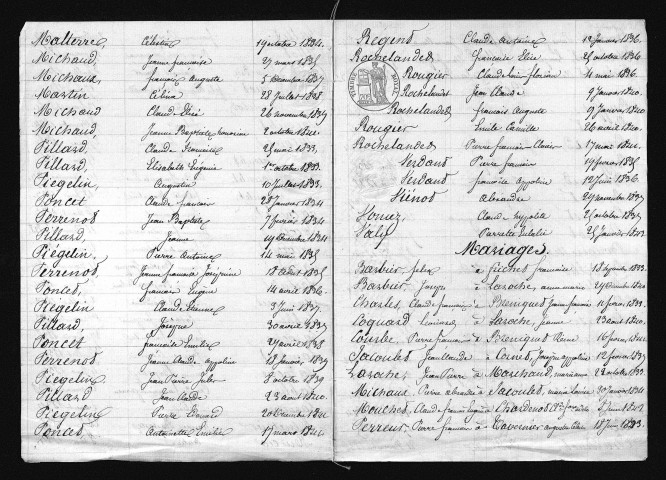 Malterre, Célestin 19 octobre 1834.
Michaud, Jeanne françoise 27 mars 1835
Michaux, françois Auguste 5 Décembre 1837
Martin Célina 28 Juillet 1838
Michaud Claude Elisé 26 novembre 1839
Michaud, Jeanne Baptiste 2 octobre 1842.
Pillard, Claude françois 25 mai 1833.
Pillard, Elisabeth Eugénie 1er octobre 1833.
Piegelin, Augustin 10 Juillet 1833.
Poncet Claude françois 28 Janvier 1834
Perrenot Jean Baptiste 7 février 1834
Pillard, Jeanne 19 Décembre 1834
Piegelin, Pierre Antoine 14 mai 1835
Perrenot Jeanne françoise Josephine 18 Août 1835
Poncet, françois Eugène 14 avril 1836
Piegelin Claude Etienne 3 Juin 1837.
Pillard, Joseph 30 avril 1837
Poncet françoise Emilie 29 avril 1838
Perrenot Jeanne Claude appoline 28 Janvier 1839
Piegelin Jean Pierre Jules 8 octobre 1839
Pillard Jean Claude 23 août 1840.
Piegelin Pierre Edouard 20 Décembre 1841
Poncet, Antoinette Emilie 17 mars 1842.
Regent Claude Antoine 12 Janvier 1836.
Rochelandet françoise Elise 25 octobre 1836
Rougier Claude Louis florian 11 mai 1836.
Rochelandet Jean Claude 9 Janvier 1840
Rochelandet françois Auguste 9 Janvier 1840.
Rougier Emile Camille 26 avril 1840.
Rochelandet Pierre françois Xavier 17 mai 1842.
Verdant Pierre françois 14 février 1835
Verdant françoise appoline 12 Juin 1836.
Viénot alexandre 29 novembre 1837
Vomez Claude hyppolite 25 octobre 1835
Mariages.
Barbier Jules à françoise 1833.
Barbier Joseph à Laroche, anne marie 24 Décembre 1840
Charles, Claude françois à Blenque Jeanne françoise 11 février 1833.
Coquard à Laroche, Jeanne 23 août 1840.
Courbe, Pierre françois à Blenque Reine 16 février 1842.
Jacoulet Jean Claude à Cornet, Josephe appoline 12 février 1837
Laroche, Jean Pierre à Marchand, marianne 28 octobre 1832.
Michaux, Pierre alexandre à Jacoulet, marie Louise 30 Janvier 1834
Mouchet, Claude françois à Chardenot 1842
Perreur Pierre françois à Tavernier 18 Juin 1833.